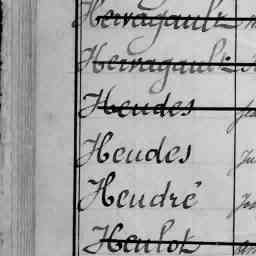 Hervagault
Hervagault
Heudes
Heudes
Heudré
Heulot